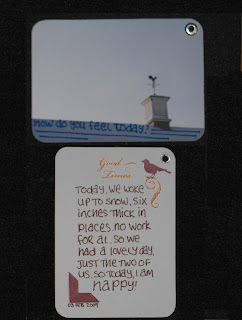 How do you feel today?
Good
Times
Today, we woke
up to snow, six
inches thick in
places, no work
for al, so we
had a lovely day,
just the two of
us, so today, I am
happy!
03 FEB 2009